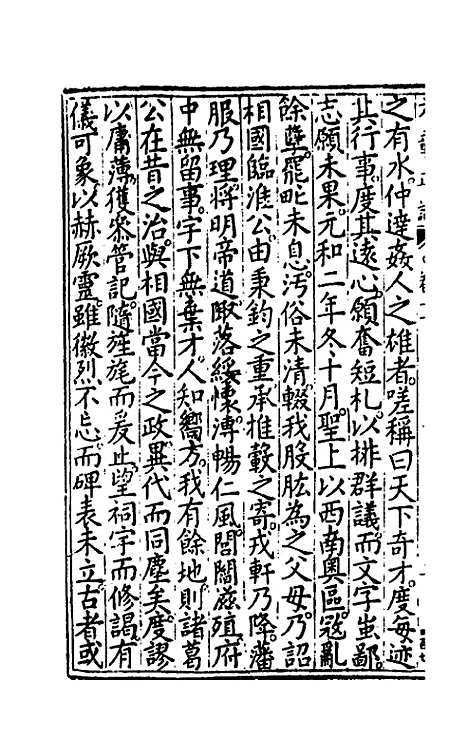 之有水仲達姦人之雄者嗟稱曰天下奇才度每迹
其行事度其遠心願奮短札以排群議而文字蚩鄙
志願未果元和二年冬十月聖上以西南奧區寇亂
餘孽罷甿未息汚俗未清輟我股肱為之父母乃詔
相國臨淮公由秉鈞之重承推轂之寄戎軒乃降藩
服乃理將明帝道陬落綏懷溥暢仁風閭闔滋殖府
中無留事宇下無棄才人知嚮方我有餘地則諸葛
公在昔之治與相國當今之政異代而同塵矣度謬
以庸薄獲叅管記隨旌旄而爰止望祠宇而修謁有
儀可象以赫厥靈雖徽烈不忘而碑表未立古者或